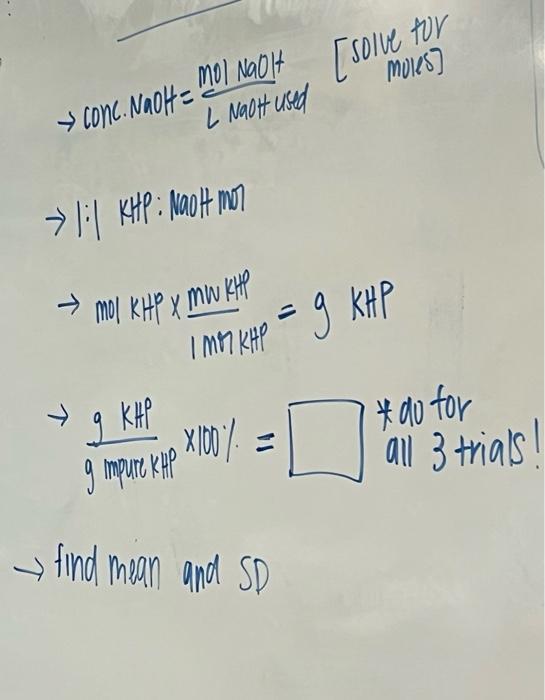 → conc. NaOH = mol NaOH / L NaOH used [solve for moles]
→ 1:1 KHP : NaOH mol
→ mol KHP x mw KHP / 1 mol KHP = g KHP
→ g KHP / g impure KHP x100% = □ * do for all 3 trials!
→ find mean and SD